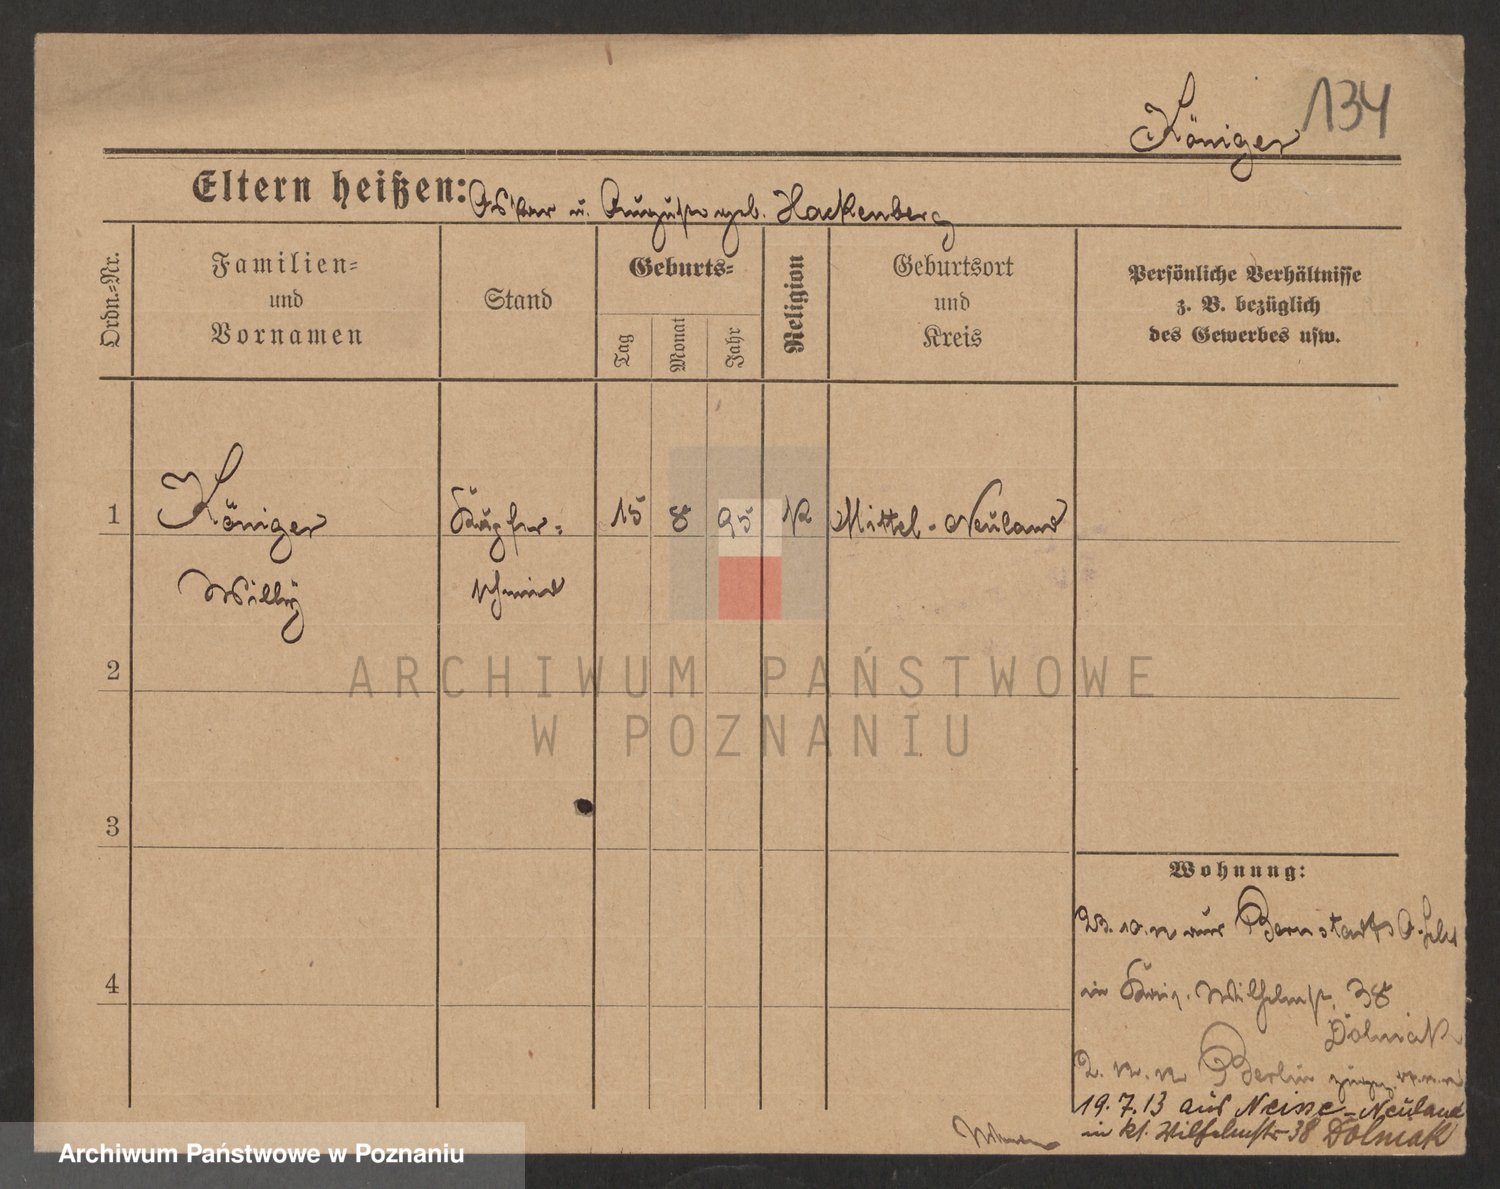 134
Königer
Eltern heißen: Oskar u. Auguste geb. Hackenberg
Ordn.-Nr.
Familien-
und
Vornamen
Stand
Geburts-
Tag
Monat
Jahr
Religion
Geburtsort
und
Kreis
Persönliche Verhältnisse
z. B. bezüglich
des Gewerbes usw.
1 Königer Kupfer- 15 8 95 K Mittel-Neuland
Willy schmied
2
ARCHIWUM PAŃSTWOWE
W POZNANIU
3
Wohnung:
aus Bernstadt
4
in Wilhelmstr. 38
Dolniak
Berlin
19.7.13 aus Neisse-Neuland
in kl. Wilhelmstr 38 Dolniak
Archiwum Państwowe w Poznaniu